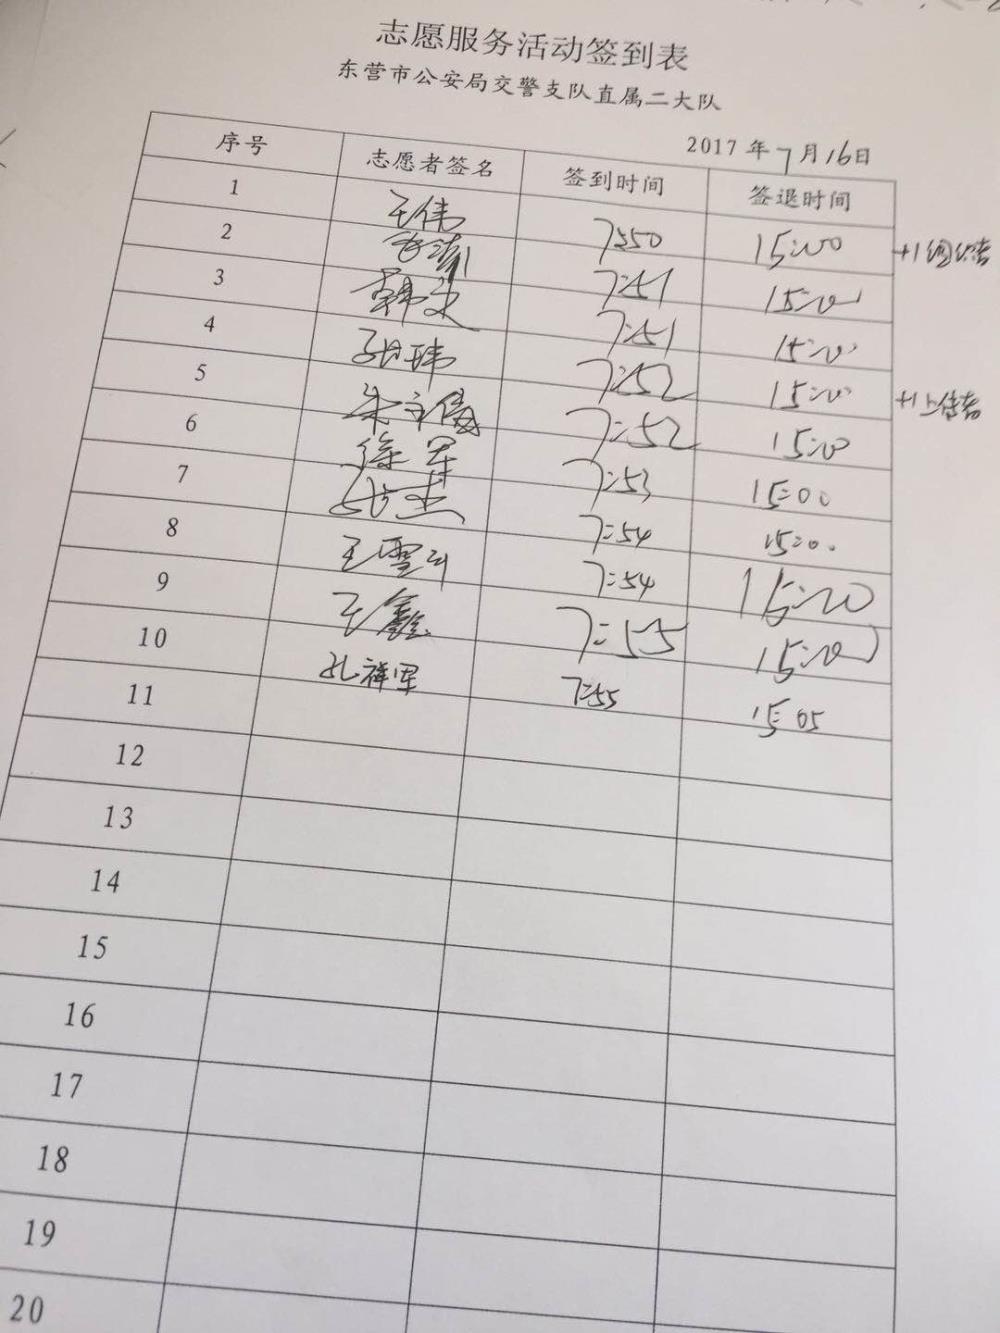 志愿服务活动签到表
东营市公安局交警支队直属二大队
2017 年 7 月 16 日
序号 志愿者签名 签到时间 签退时间
1 王伟 7:50 15:00 +1组织者
2 7:51 15:00
3 7:51 15:00
4 玮 7:52 15:00 +1上传者
5 朱 7:52 15:00
6 徐军 7:53 15:00
7 杰 7:54 15:00
8 王雪 7:54 15:00
9 王鑫 7:55 15:00
10 孔祥军 7:55 15:05
11
12
13
14
15
16
17
18
19
20